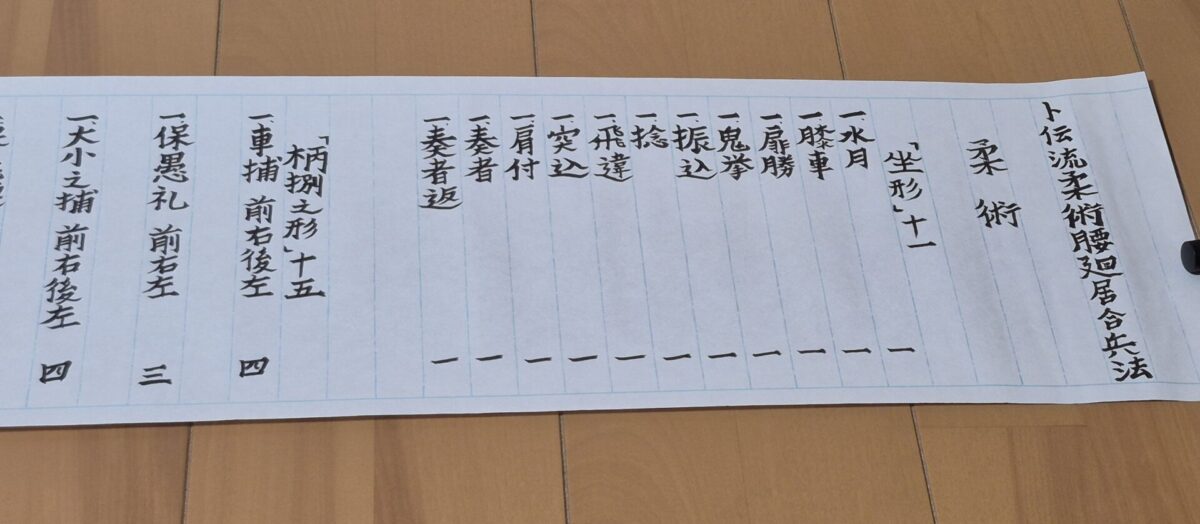 卜伝流柔術腰廻居合兵法
柔術
「坐形」十一
一、水月 一
一、膝車 一
一、扉勝 一
一、鬼挙 一
一、振込 一
一、捻 一
一、飛違 一
一、突込 一
一、肩付 一
一、奏者 一
一、奏者返 一
「柄捌之形」十五
一、車捕 前右後左 四
一、保愚礼 前右左 三
一、大小之捕 前右後左 四